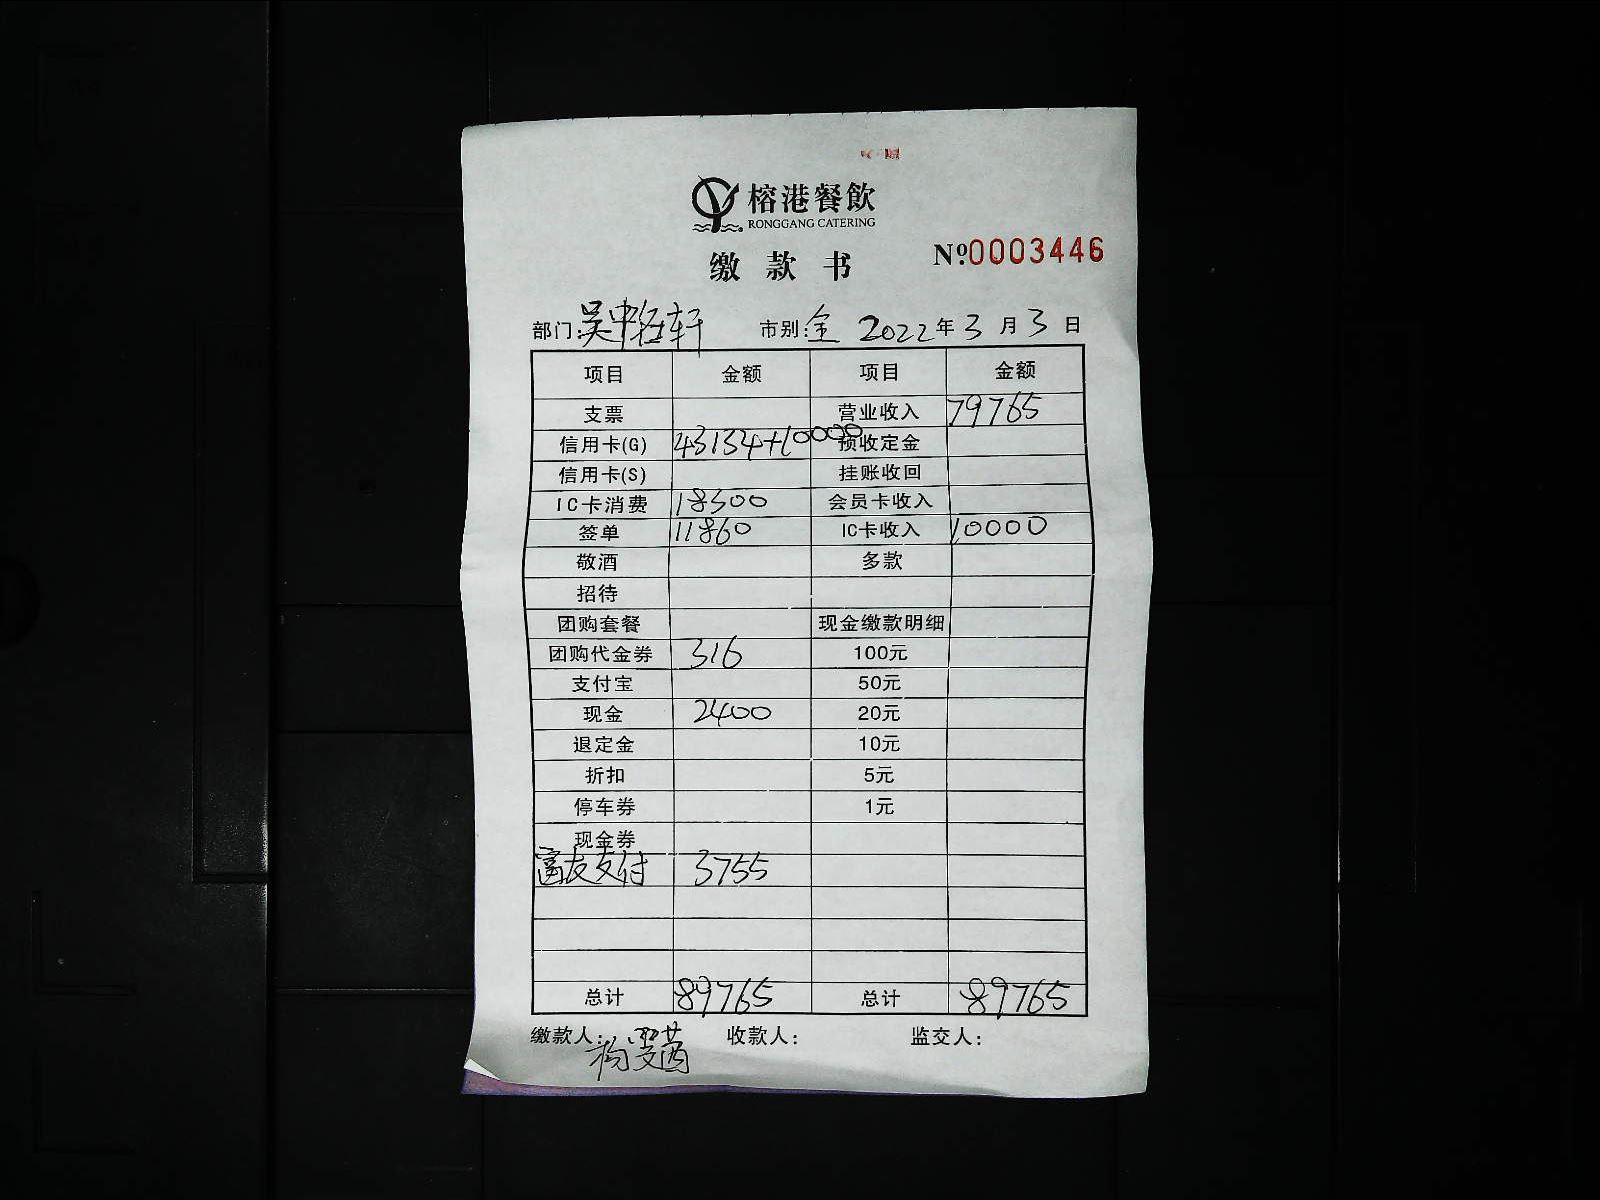 榕港餐飲
RONGGANG CATERING
缴款书 №0003446
部门: 吴中 轩 市别: 全 2022年3月3日
项目 金额 项目 金额
支票 营业收入 79765
信用卡(G) 43134+10000 预收定金
信用卡(S) 挂账收回
IC卡消费 18300 会员卡收入
签单 11860 IC卡收入 10000
敬酒 多款
招待
团购套餐 现金缴款明细
团购代金券 316 100元
支付宝 50元
现金 2400 20元
退定金 10元
折扣 5元
停车券 1元
现金券
富友支付 3755
总计 89765 总计 89765
缴款人: 杨 收款人: 监交人: